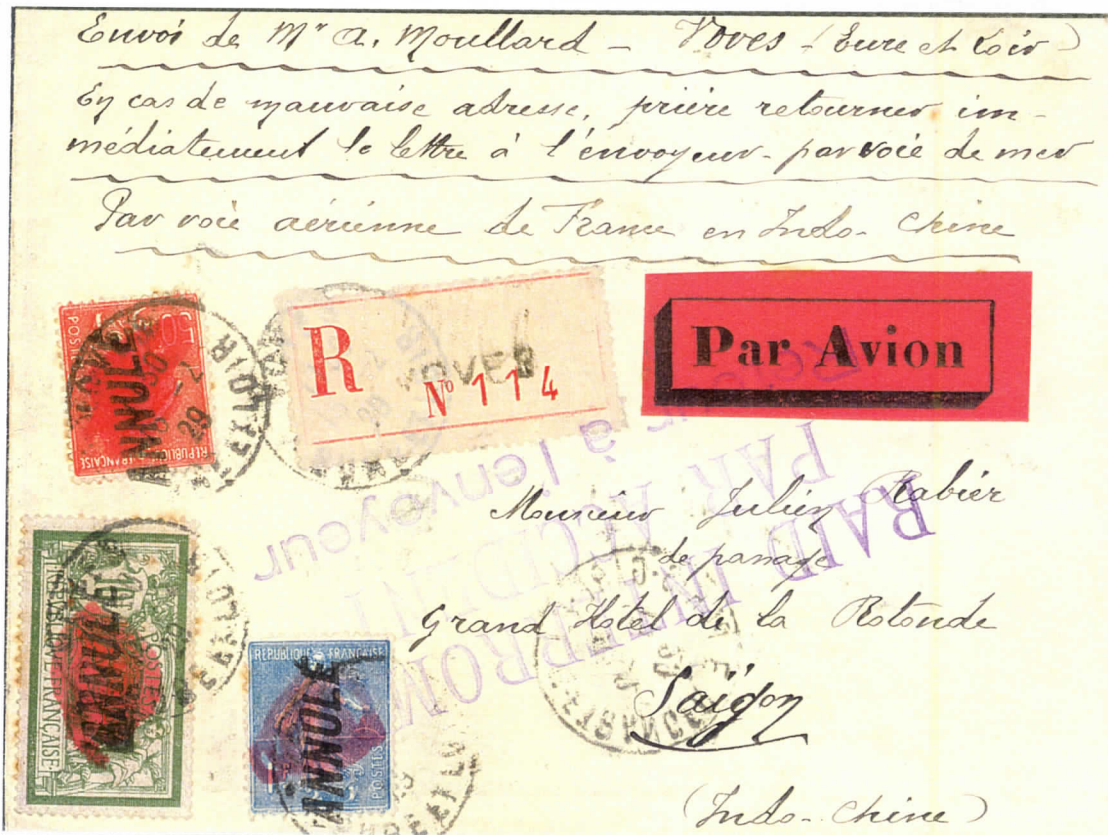 Envoi de Mr A. Moullard - Voves (Eure et Loir)
En cas de mauvaise adresse, prière retourner im-
médiatement la lettre à l'envoyeur - par voie de mer
Par voie aérienne de France en Indo-Chine
50
POSTES
RÉPUBLIQUE FRANÇAISE
ANNULÉ
R
VOVES
No 114
Par Avion
RAID INTERROM
PAR ACCIDENT
à l'envoyeur
Monsieur Julien Rabier
de passage
Grand Hôtel de la Rotonde
Saïgon
(Indo-Chine)
POSTES
REPUBLIQUE FRANÇAISE
ANNULÉ
REPUBLIQUE FRANÇAISE
POSTES
ANNULÉ